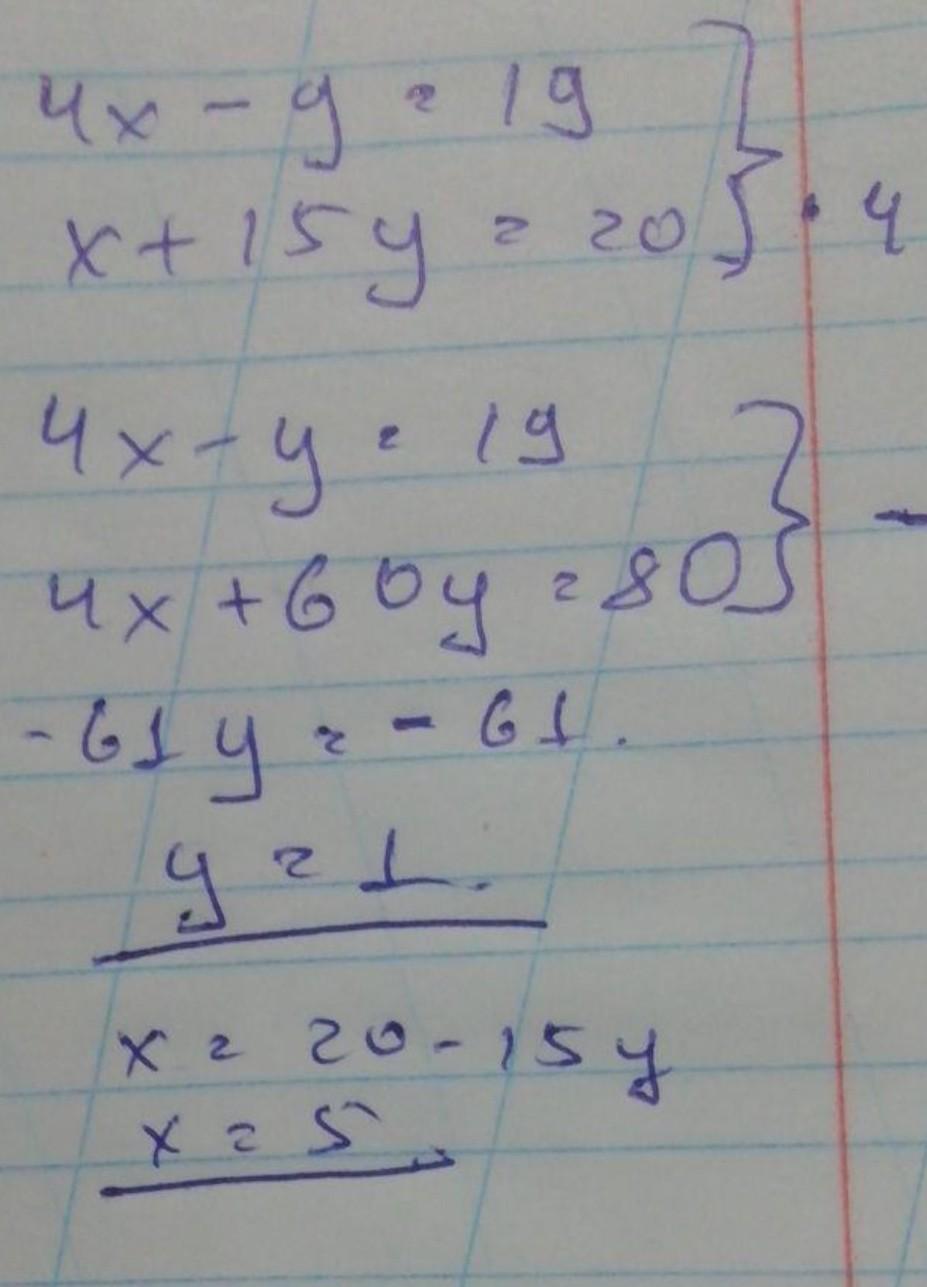 4x - y = 19
x + 15y = 20 } · 4
4x - y = 19
4x + 60y = 80 } -
-61y = -61.
y = 1.
x = 20 - 15y
x = 5.